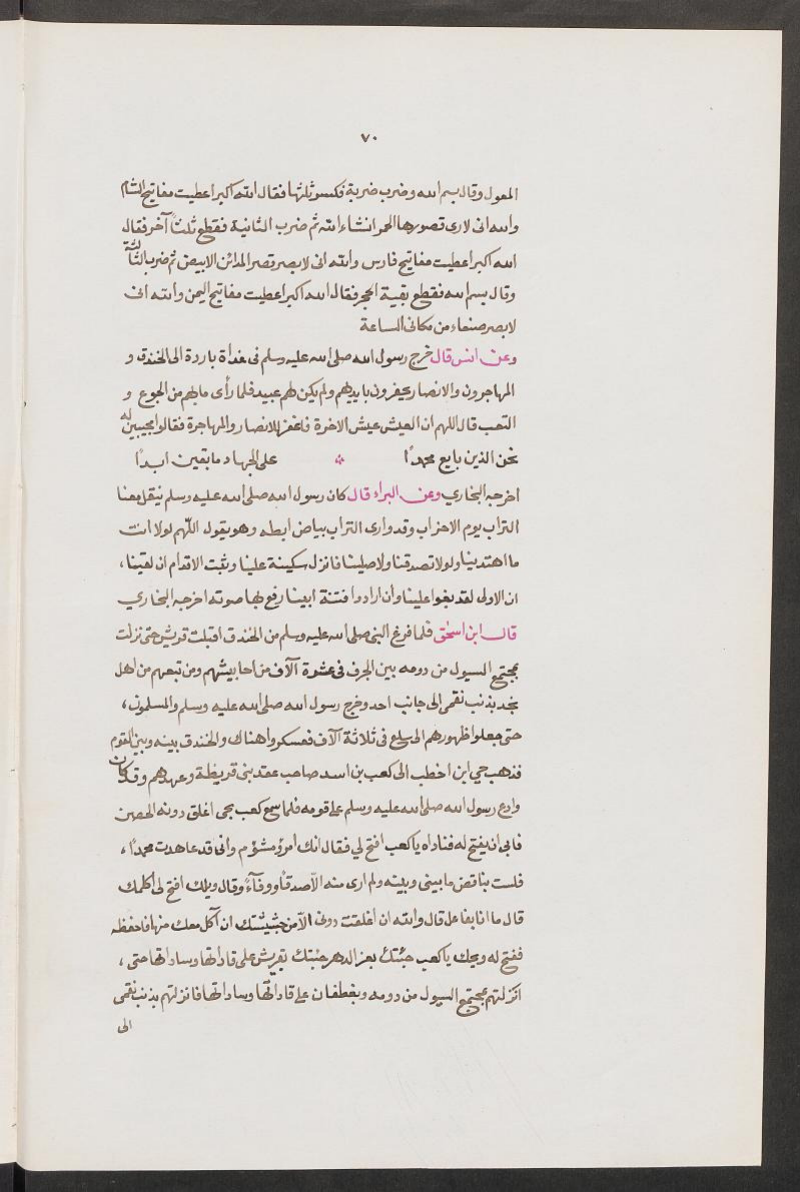 ٧٠
المعول وقال بسم الله وضرب ضربة فكسر ثلثها فقال الله اكبر اعطيت مفاتيح الشام
والله انى لارى قصورها الحمر انشاء الله ثم ضرب الثانية فقطع ثلثاً آخر فقال
الله اكبر اعطيت مفاتيح فارس والله انى لابصر قصر المدائن الابيض ثم ضرب الثالثة
وقال بسم الله فقطع بقية الحجر فقال الله اكبر اعطيت مفاتيح اليمن والله انى
لابصر صنعاء من مكانى الساعة
وعن انس قال خرج رسول الله صلى الله عليه وسلم فى غداة باردة الى الخندق و
المهاجرون والانصار يحفرون بايديهم ولم يكن لهم عبيد فلما رأى مابهم من الجوع و
التعب قال اللهم ان العيش عيش الاخرة فاغفر للانصار والمهاجرة فقالوا مجيبين له
نحن الذين بايع محمدًا على الجهاد ما بقين ابدًا
اخرجه البخاري وعن البراء قال كان رسول الله صلى الله عليه وسلم ينقل معنا
التراب يوم الاحزاب وقد وارى التراب بياض ابطه وهو يقول اللهم لولا انت
ما اهتدينا ولولا تصدقنا ولا صلينا فانزل سكينة علينا وثبت الاقدام ان لقينا،
ان الاولى لقد بغوا علينا وان ارادوا فتنة ابينا رفع بها صوته اخرجه البخاري
قال ابن اسحٰق فلما فرغ النبى صلى الله عليه وسلم من الخندق اقبلت قريش حتى نزلت
بمجتمع السيول من دومه بين الجرف فى عشرة آلاف من احابيشهم ومن تبعهم من اهل
نجد بذنب نقمى الى جانب احد وخرج رسول الله صلى الله عليه وسلم والمسلمون،
حتى جعلوا ظهورهم الى سلع فى ثلاثة آلاف فعسكروا هناك والخندق بينه وبين القوم
فذهب حي ابن اخطب الى كعب بن اسد صاحب عقد بنى قريظة وعهدهم وقد كان
وادع رسول الله صلى الله عليه وسلم على قومه فلما سمع كعب بحى اغلق دونه الحصن
فابى ان يفتح له فناداه ياكعب افتح لي فقال انك امرؤ مشؤم وانى قد عاهدت محمدًا،
فلست بناقض ما بينى وبينه ولم ارى منه الاّ صدقاً ووفآءً وقال ويلك افتح لى اكلمك
قال ما انا بفاعل قال والله ان اغلقت دونى الآمن جشيشتك ان آكل معك منها فاحفظه
ففتح له ويحك ياكعب جئتك بعز الدهر جئتك بقريش على قادتها وساداتها حتى،
انزلتهم بمجتمع السيول من دومه وبغطفان على قاداتها وساداتها فانزلتهم بذنب نقمى
الى